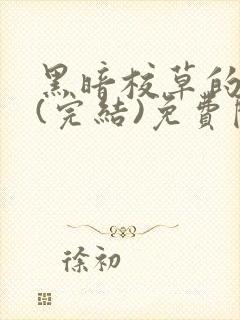 黑暗校草的
(完結)免費
徐初